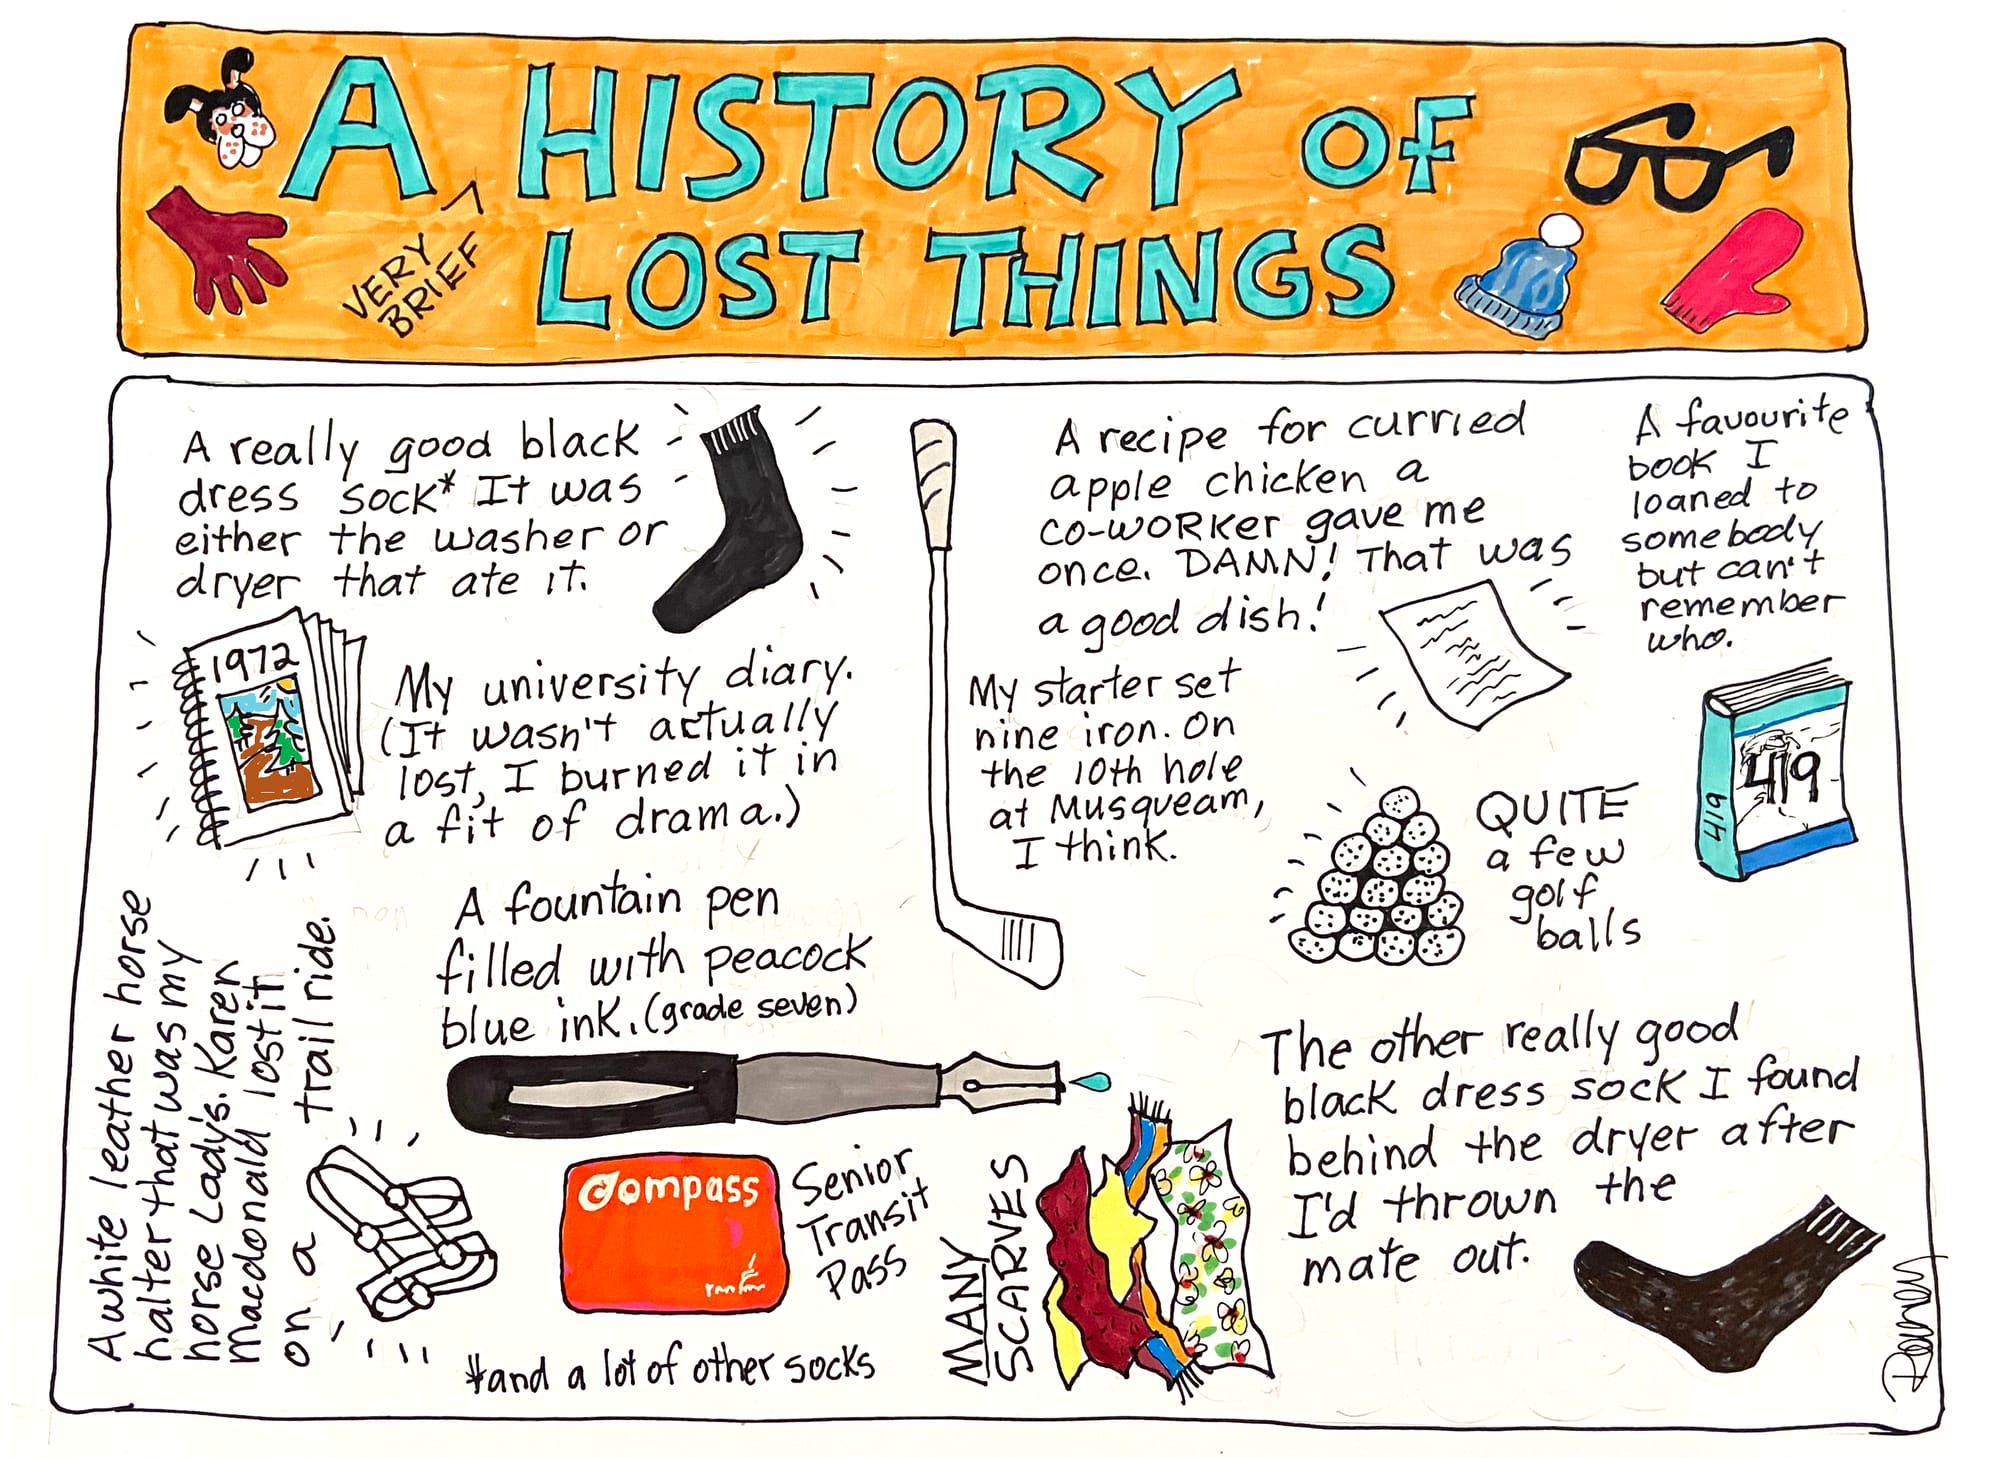 A HISTORY OF
VERY
BRIEF
LOST THINGS
A really good black
dress sock* It was
either the washer or
dryer that ate it.
A recipe for curried
apple chicken a
co-worker gave me
once. DAMN! That was
a good dish!
A favourite
book I
loaned to
somebody
but can't
remember
who.
1972
My university diary.
(It wasn't actually
lost, I burned it in
a fit of drama.)
My starter set
nine iron. On
the 10th hole
at Musqueam,
I think.
419
419
QUITE
a few
golf
balls
A white leather horse
halter that was my
horse Lady's. Karen
Macdonald lost it
on a trail ride.
A fountain pen
filled with peacock
blue ink. (grade seven)
The other really good
black dress sock I found
behind the dryer after
I'd thrown the
mate out.
Compass
Senior
Transit
Pass
MANY
SCARVES
*and a lot of other socks